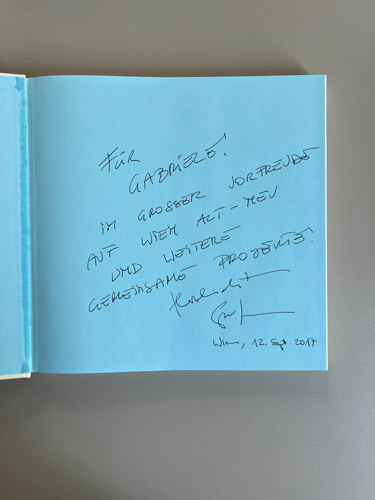 FÜR
GABRIELE!
IN GROSSER VORFREUDE
AUF WIEN ALT-NEU
UND WEITERE
GEMEINSAME PROJEKTE!
Herzlichst
Wien, 12. Sept. 2017